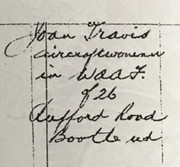 Joan Travis
aircraftwoman
in W.A.A.F.
of 26
Rufford Road
Bootle ud